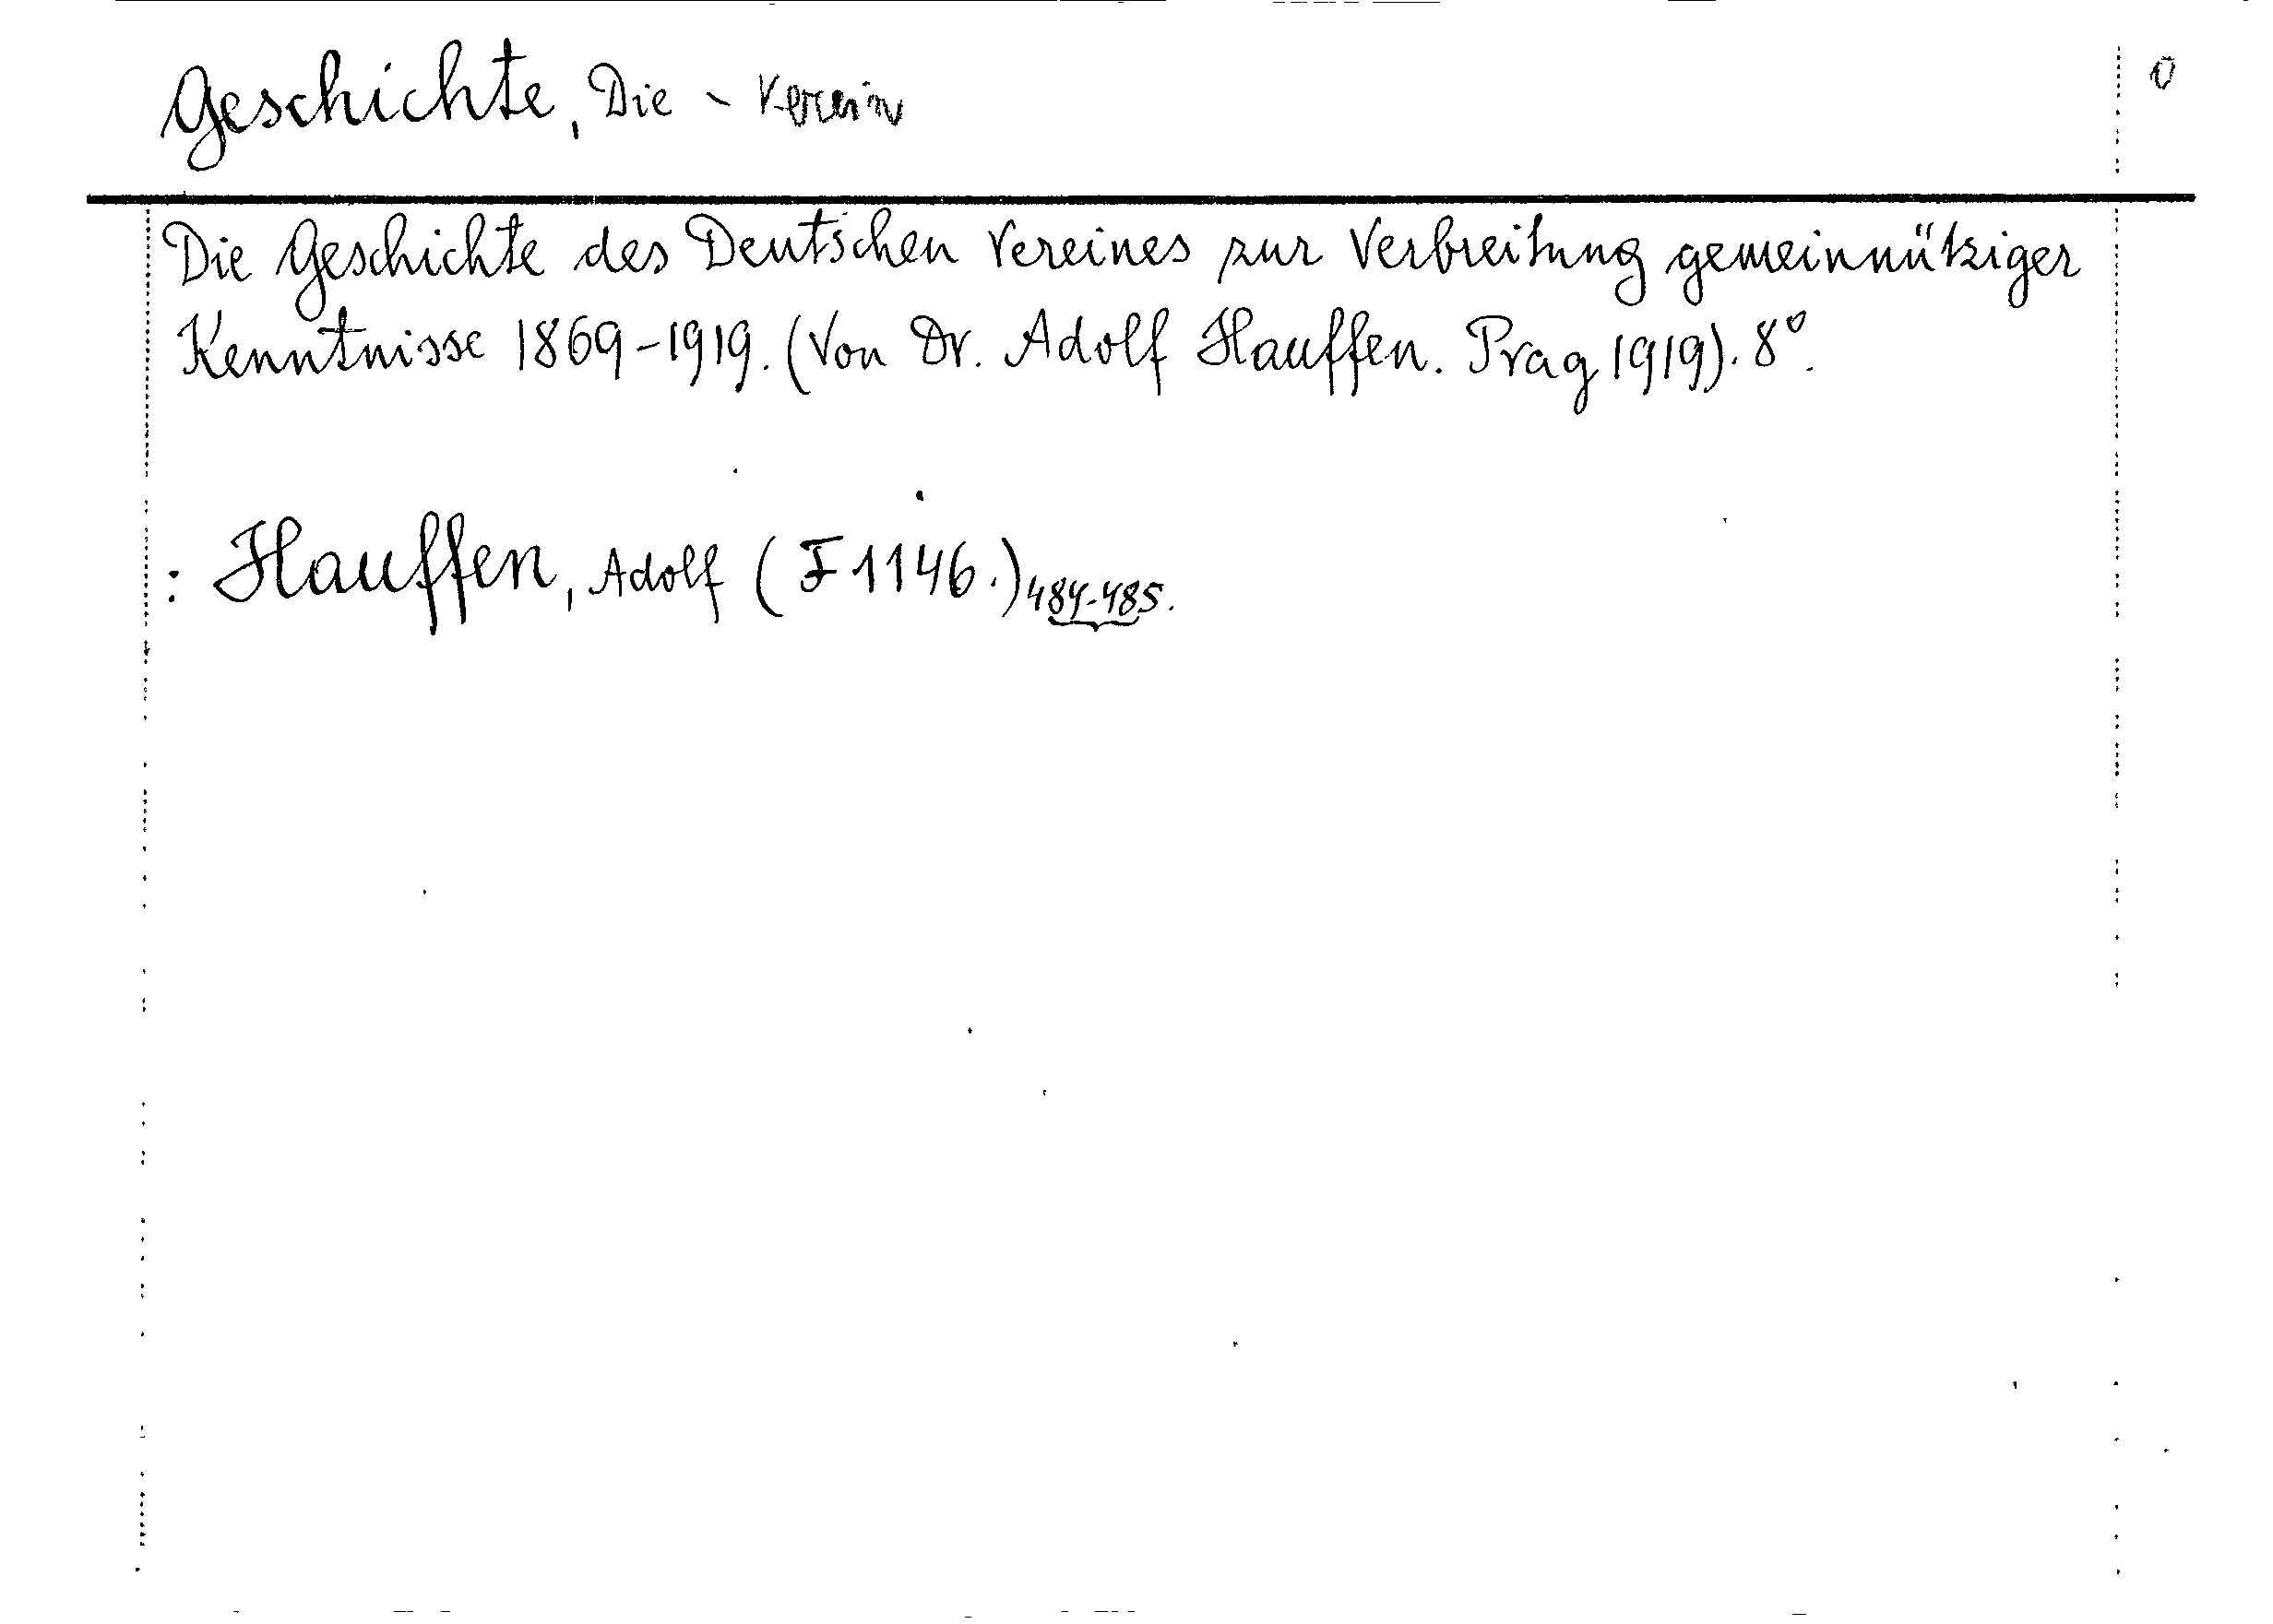 Geschichte, Die - Verein
0
Die Geschichte des Deutschen Vereines zur Verbreitung gemeinnütziger
Kenntnisse 1869-1919. (Von Dr. Adolf Hauffen. Prag 1919). 8°.
: Hauffen, Adolf (F 1146.) 484-485.